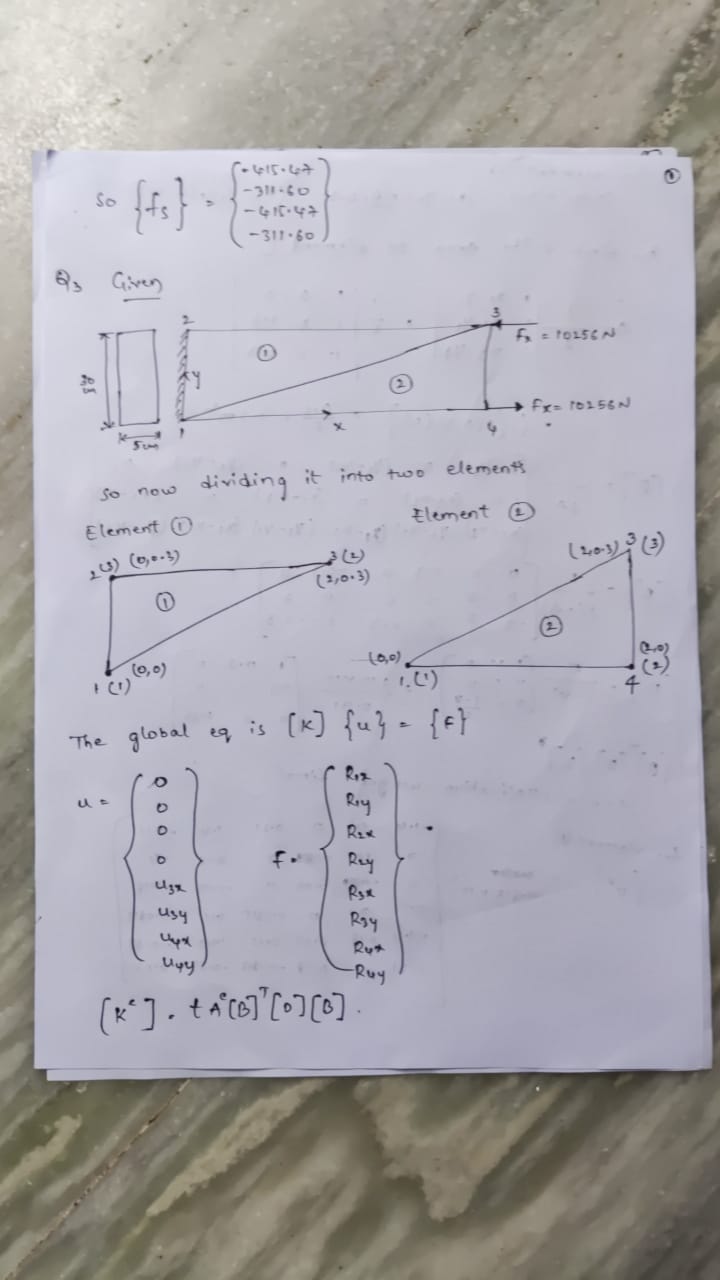 ①
so {fs} = {-415.47
-311.60
-415.47
-311.60}
Q3 Given
2
3
①
Fx = 10256N
30
cm
y
②
Fx = 10256N
1
x
4
5cm
so now dividing it into two elements
Element ①
Element ②
2(3) (0,0.3)
3(2)
(2,0.3)
①
1(1)
(0,0)
(2,0.3) 3(3)
②
(0,0)
1.(1)
(2,0)
(2)
4
The global eq is [K] {u} = {F}
u = {0
0
0
0
u3x
u3y
u4x
u4y}
f = {R1x
R1y
R2x
R2y
R3x
R3y
R4x
R4y}
[Kᵉ] = tAᵉ[B]ᵀ[D][B].